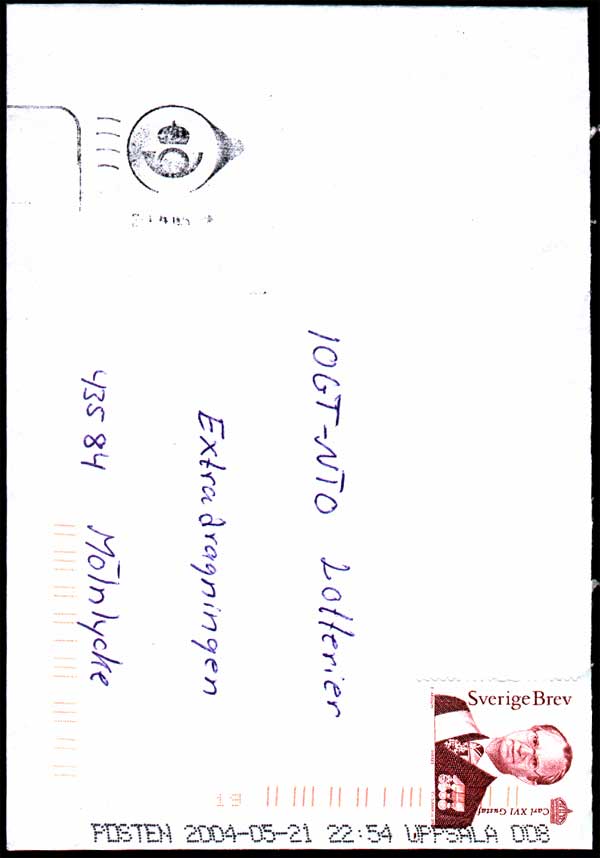 IOGT-NTO Lotterier
Extradragningen
435 84 Mölnlycke
Sverige Brev
Carl XVI Gustaf
POSTEN 2004-05-21 22:54 UPPSALA 008